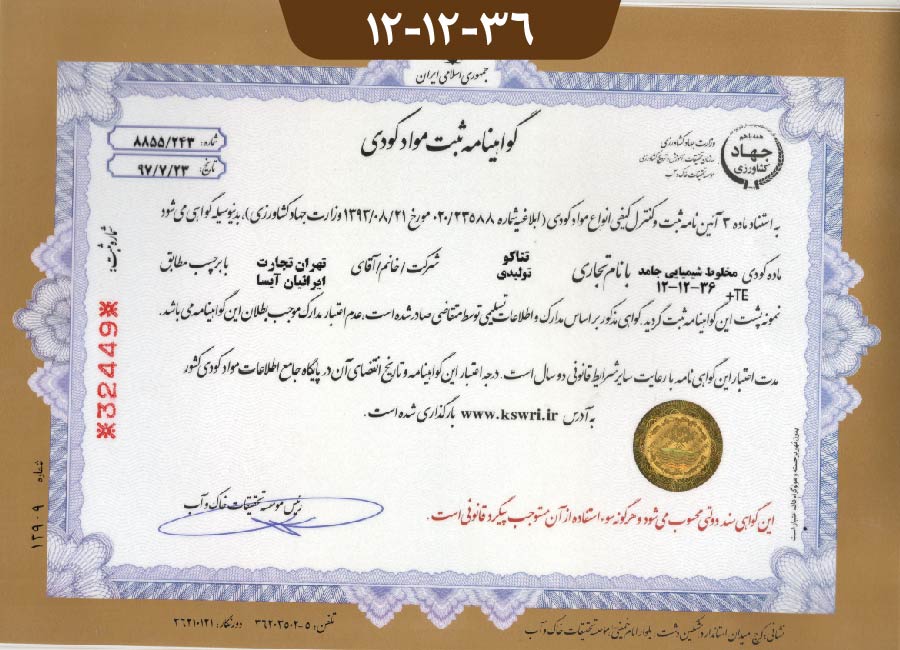 ۱۲-۱۲-۳۶
جمهوری اسلامی ایران
گواهینامه ثبت مواد کودی
همه با هم
جهاد
کشاورزی
وزارت جهاد کشاورزی
سازمان تحقیقات، آموزش و ترویج کشاورزی
موسسه تحقیقات خاک و آب
شماره: ۸۸۵۵/۲۴۳
تاریخ: ۹۷/۷/۲۳
به استناد ماده ۳ آئین نامه ثبت و کنترل کیفی انواع مواد کودی (ابلاغیه شماره ۰۲۰/۲۳۵۸۸ مورخ ۱۳۹۳/۰۸/۲۱ وزارت جهاد کشاورزی)، بدینوسیله گواهی می شود
ماده کودی مخلوط شیمیایی جامد ۱۲-۱۲-۳۶ +TE با نام تجاری تتاکو تولیدی شرکت/خانم/آقای تهران تجارت ایرانیان آیسا با برچسب مطابق
نمونه پشت این گواهینامه ثبت گردید. گواهی مذکور بر اساس مدارک و اطلاعات تسلیمی توسط متقاضی صادر شده است. عدم اعتبار مدارک موجب بطلان این گواهینامه می باشد.
مدت اعتبار این گواهی نامه با رعایت سایر شرایط قانونی دو سال است. درجه اعتبار این گواهینامه و تاریخ انقضای آن در پایگاه جامع اطلاعات مواد کودی کشور
به آدرس www.kswri.ir بارگذاری شده است.
رئیس موسسه تحقیقات خاک و آب
این گواهی سند دولتی محسوب می شود و هرگونه سوء استفاده از آن مستوجب پیگرد قانونی است.
شماره ثبت:
*32449*
شماره ۱۲۹۰۹
بدون مهر برجسته و هولوگرام فاقد اعتبار است
نشانی: کرج، میدان استاندارد، مشکین دشت، بلوار امام خمینی، موسسه تحقیقات خاک و آب
تلفن: ۵-۳۶۲۰۲۵۰۲ دورنگار: ۳۶۲۱۰۱۲۱